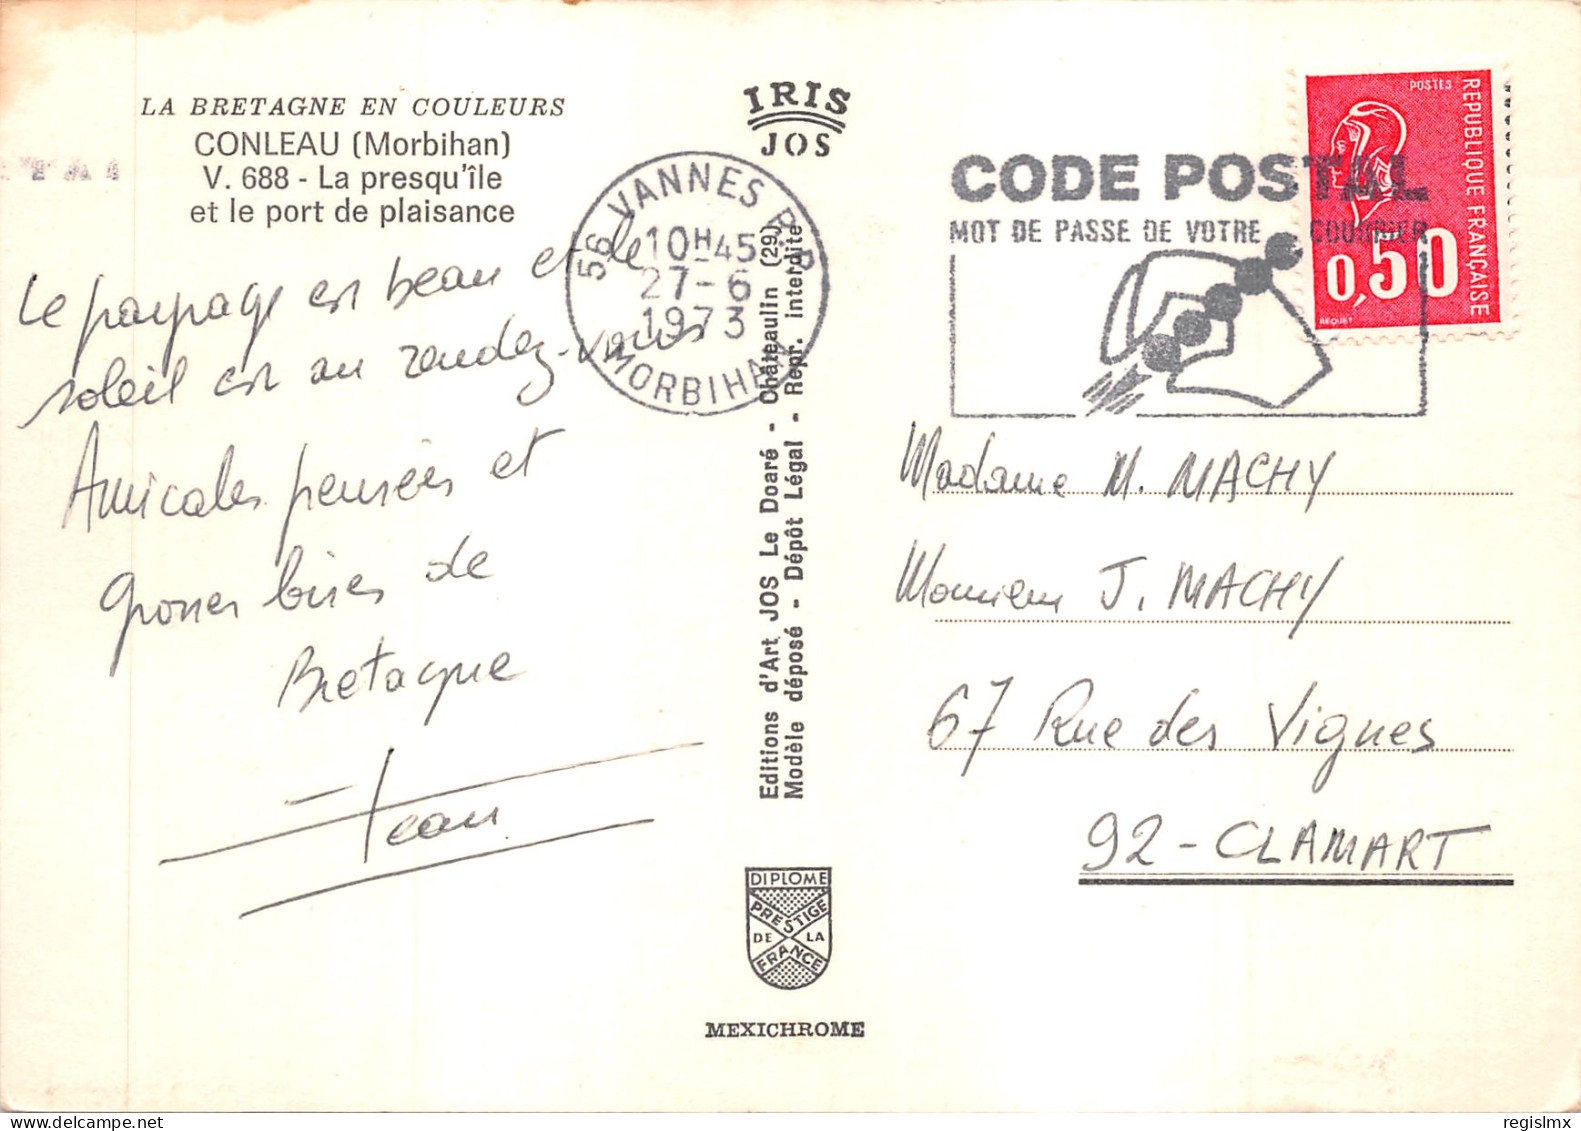 LA BRETAGNE EN COULEURS
CONLEAU (Morbihan)
V. 688 - La presqu'île
et le port de plaisance
Le paysage est beau et le
soleil est au rendez-vous
Amicales pensées et
grosses bises de
Bretagne
Jean
IRIS
JOS
56 VANNES R.P.
10H45
27-6
1973
MORBIHAN
Editions d'Art JOS Le Doaré - Châteaulin (29)
Modèle déposé - Dépôt Légal - Repr. interdite
DIPLOME
PRESTIGE
DE LA
FRANCE
MEXICHROME
CODE POSTAL
MOT DE PASSE DE VOTRE COURRIER
POSTES
REPUBLIQUE FRANÇAISE
0,50
BEQUET
Madame M. MACHY
Monsieur J. MACHY
67 Rue des Vignes
92 - CLAMART
regislmx